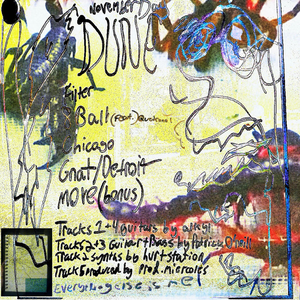 November
DUNE
Filter
Ball (feat.)
Chicago
Gnat/Detroit
MOVE (bonus)
Tracks 1+4 guitars by
Tracks 2+3 Guitar + Bass by Patrick
Track 2 synths by hurtstation
Track 5 produced by prod. miercoles
Everything else is me!